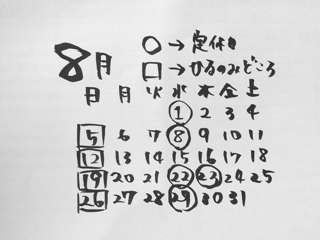 8月
○→定休日
□→ひるのみどころ
日 月 火 水 木 金 土
1 2 3 4
5 6 7 8 9 10 11
12 13 14 15 16 17 18
19 20 21 22 23 24 25
26 27 28 29 30 31